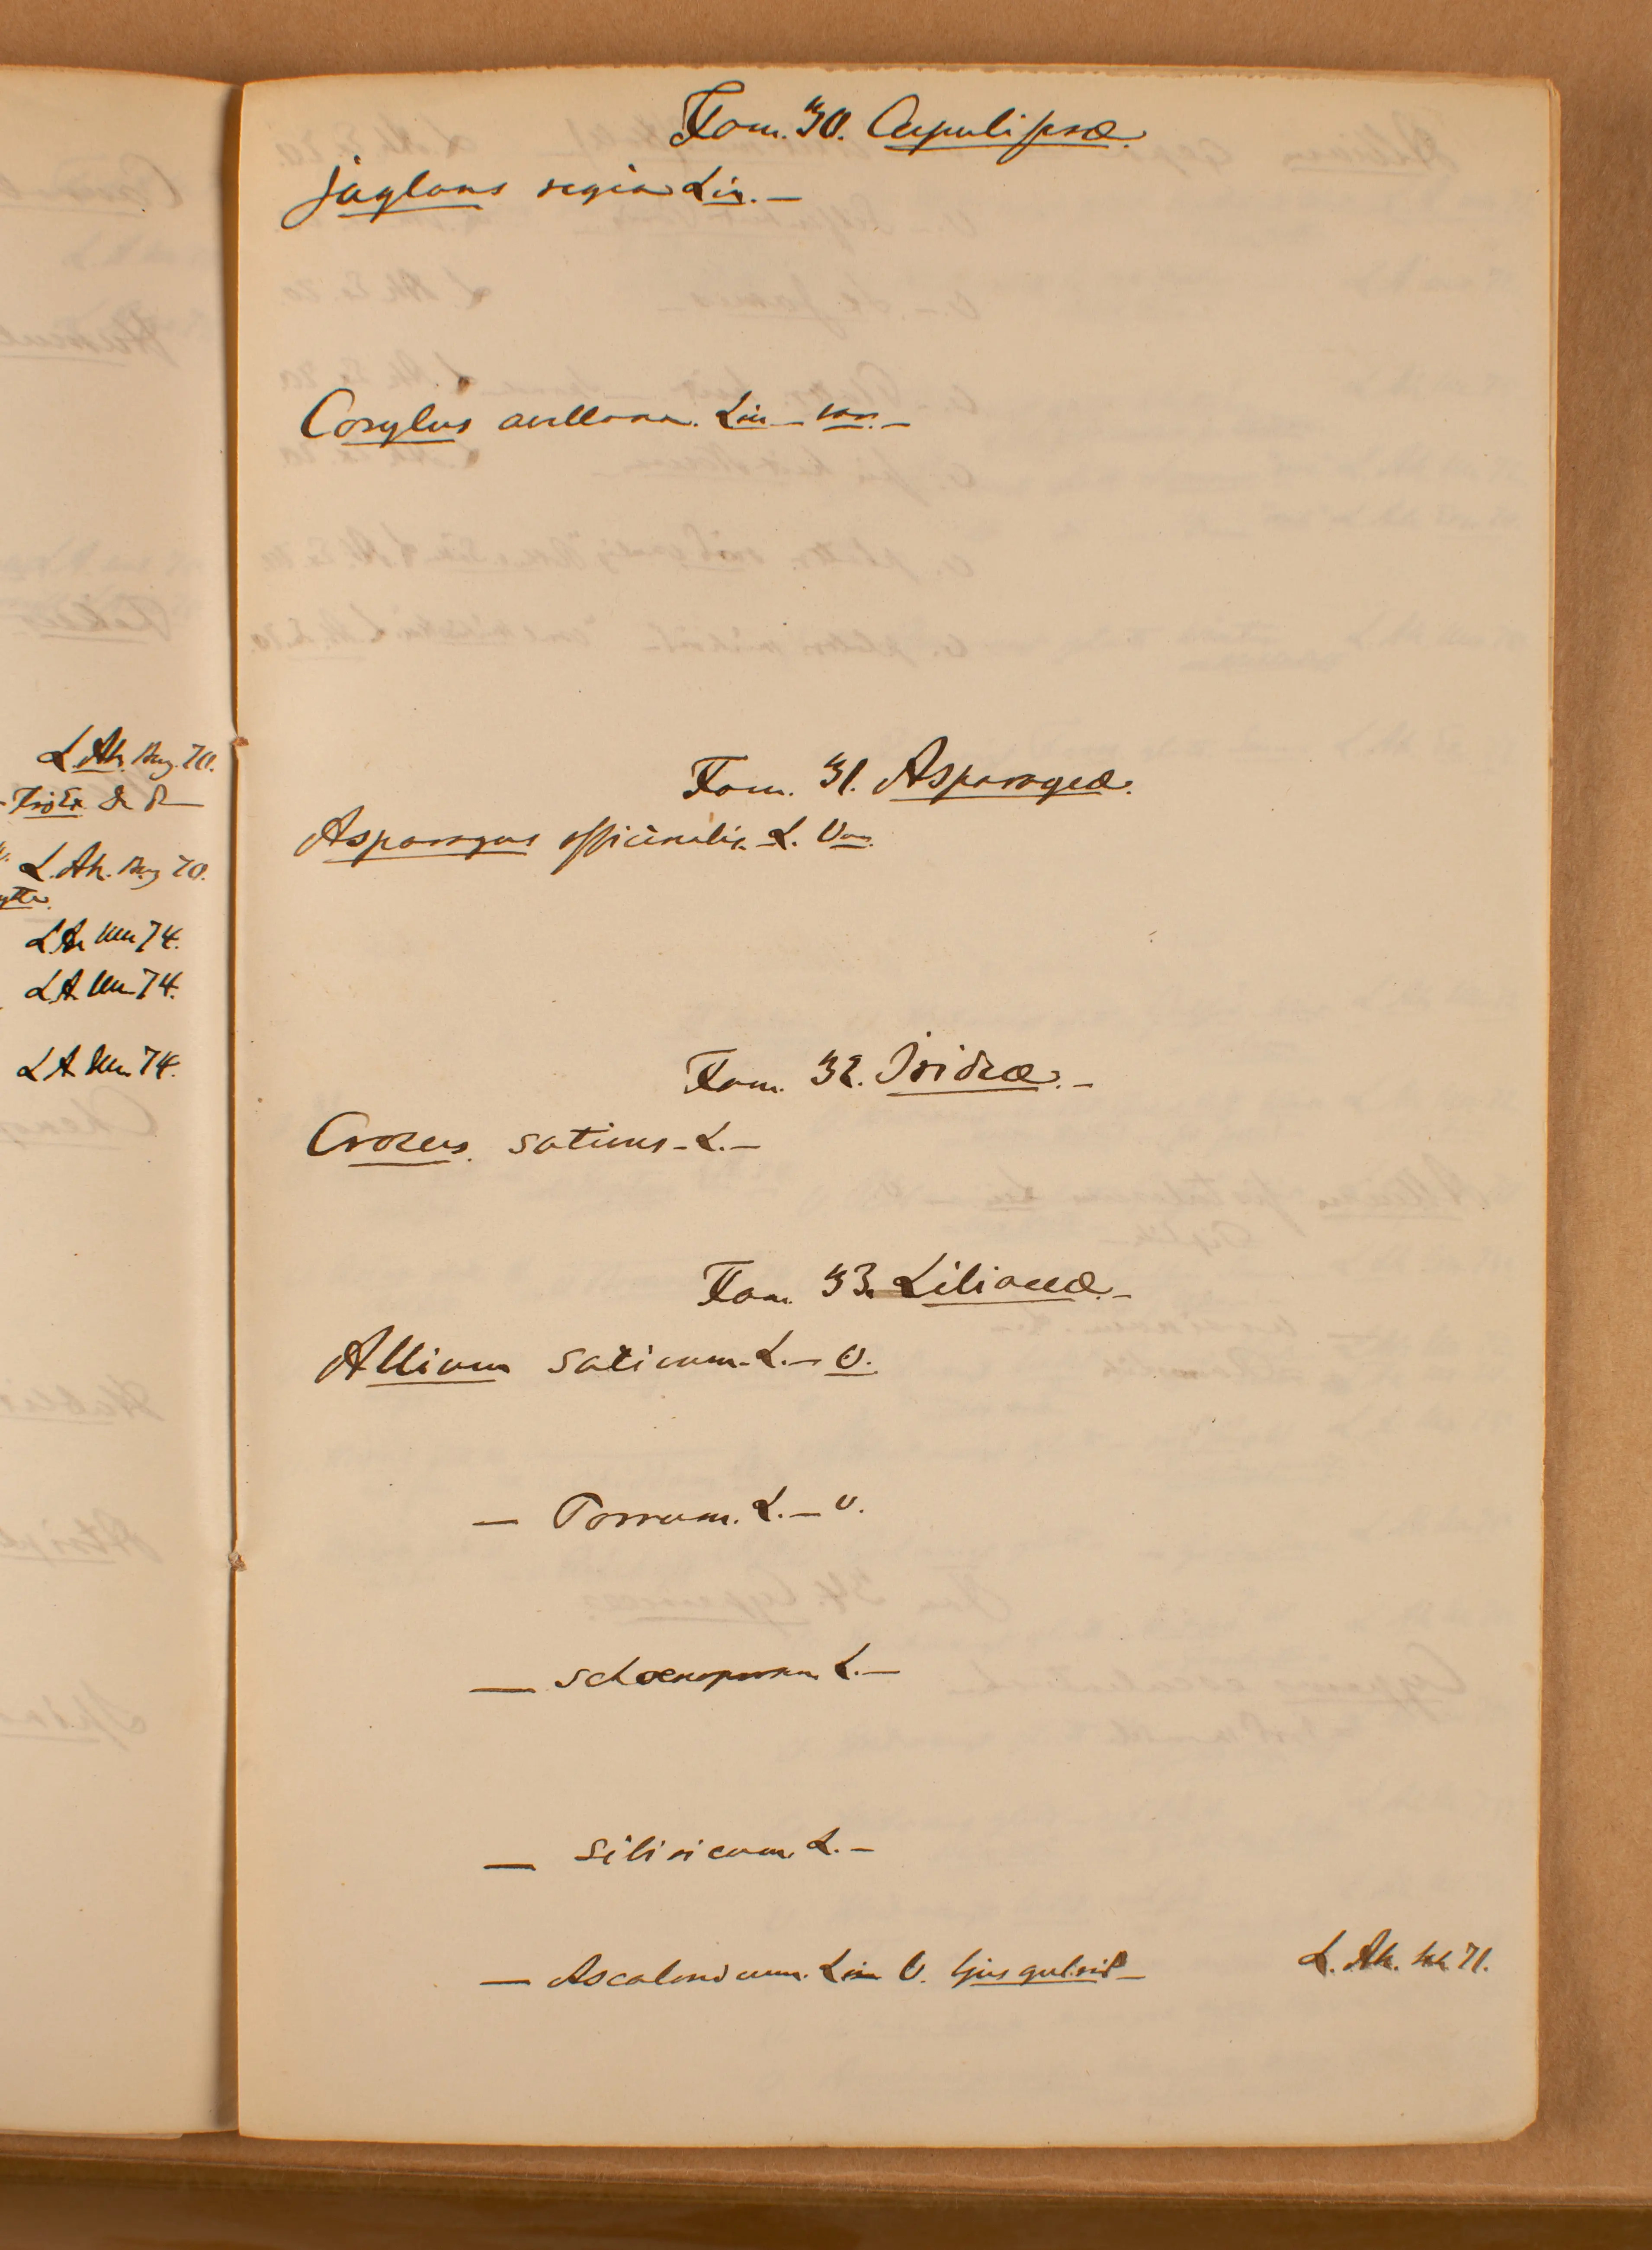 L. Ah. Aug. 70.
L. Ah. Aug 70.
L A 74.
L A 74.
L A 74.
Fam. 30. Cupuliferæ.
juglans regia Lin. —
Corylus avellana. Lin — var. —
Fam. 31. Asparageæ.
Asparagus officinalis. L. Var.
Fam. 32. Irideæ. —
Crocus. sativus - L. —
Fam. 33. Liliaceæ. —
Allium sativum - L. — V.
— Porrum. L. — V.
— Schoenoprasum L. —
— Sibiricum. L. —
— Ascalonicum. Lin V. ljusgulröd — L. Ah. 71.